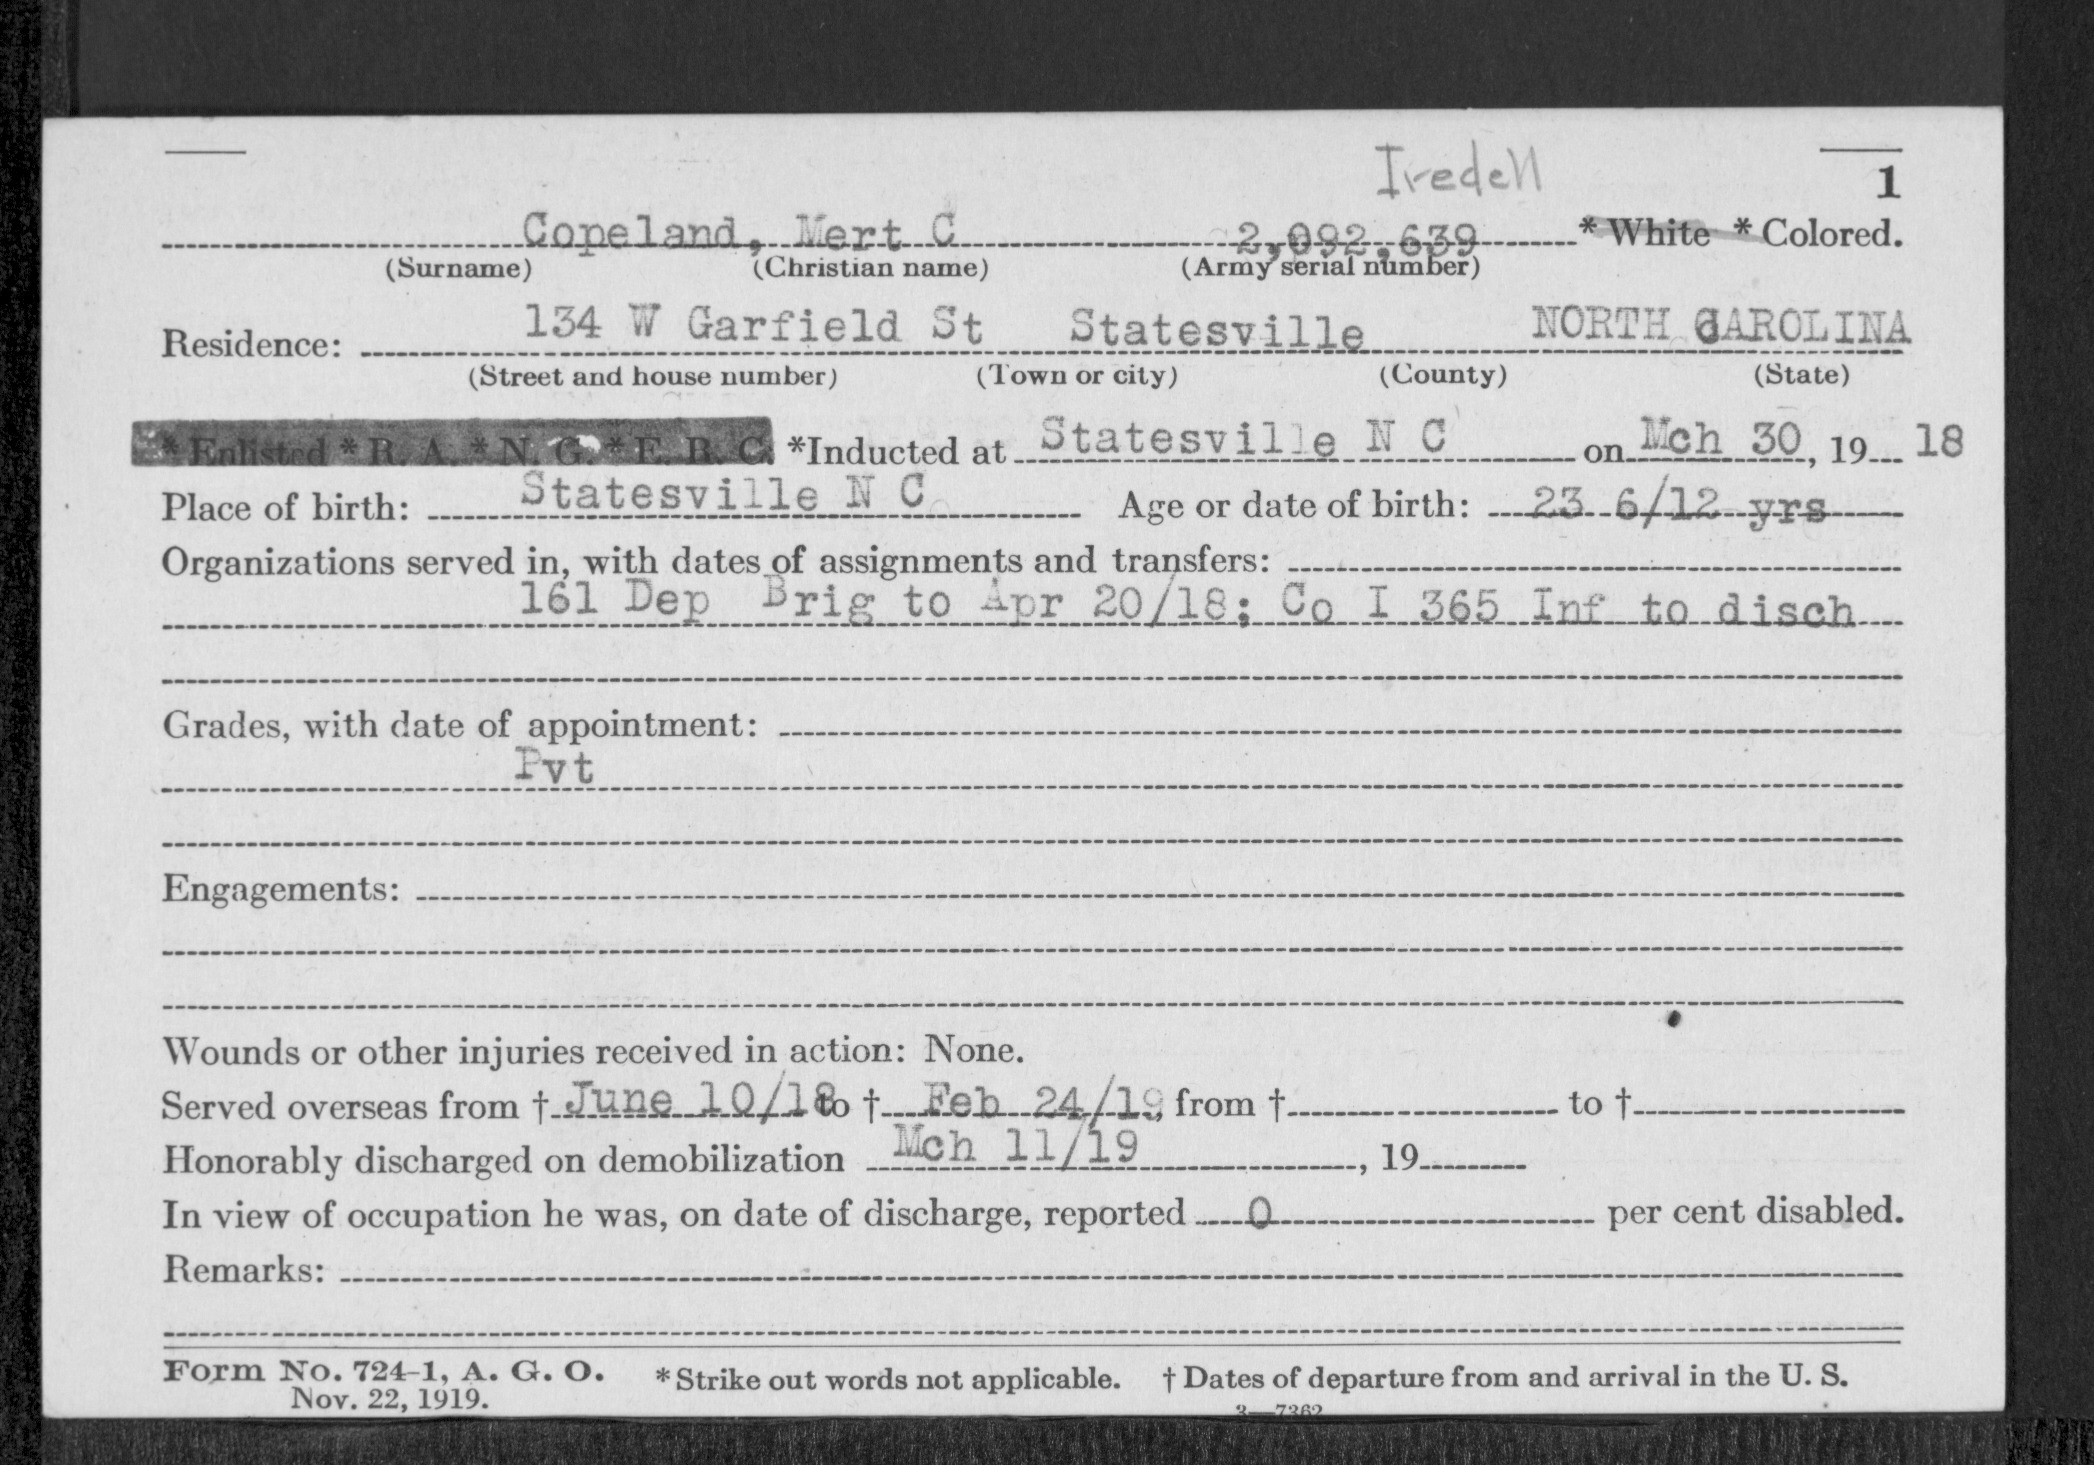 Iredell
1
Copeland, Mert C 2,092,639 * White * Colored.
(Surname) (Christian name) (Army serial number)
Residence: 134 W Garfield St Statesville NORTH CAROLINA
(Street and house number) (Town or city) (County) (State)
* Enlisted * R. A. * N. G. * E. R. C. *Inducted at Statesville N C on Mch 30, 19 18
Place of birth: Statesville N C Age or date of birth: 23 6/12 yrs
Organizations served in, with dates of assignments and transfers:
161 Dep Brig to Apr 20/18; Co I 365 Inf to disch
Grades, with date of appointment:
Pvt
Engagements:
Wounds or other injuries received in action: None.
Served overseas from † June 10/18 to † Feb 24/19, from † to †
Honorably discharged on demobilization Mch 11/19, 19
In view of occupation he was, on date of discharge, reported 0 per cent disabled.
Remarks:
Form No. 724-1, A. G. O. * Strike out words not applicable. † Dates of departure from and arrival in the U. S.
Nov. 22, 1919.
3—7362